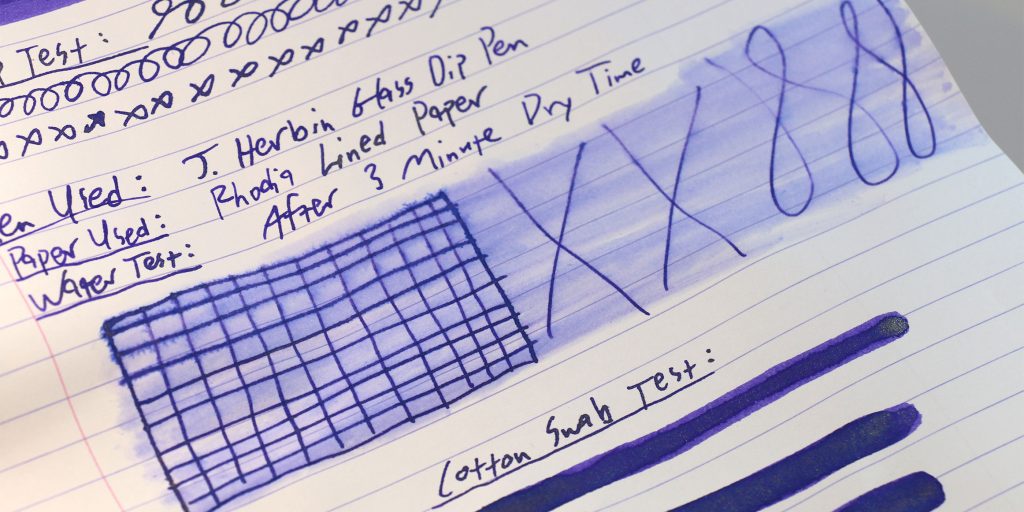 Test:
en Used: J. Herbin Glass Dip Pen
Paper Used: Rhodia Lined Paper
Water Test: After 3 Minute Dry Time
X X 8
Cotton Swab Test: